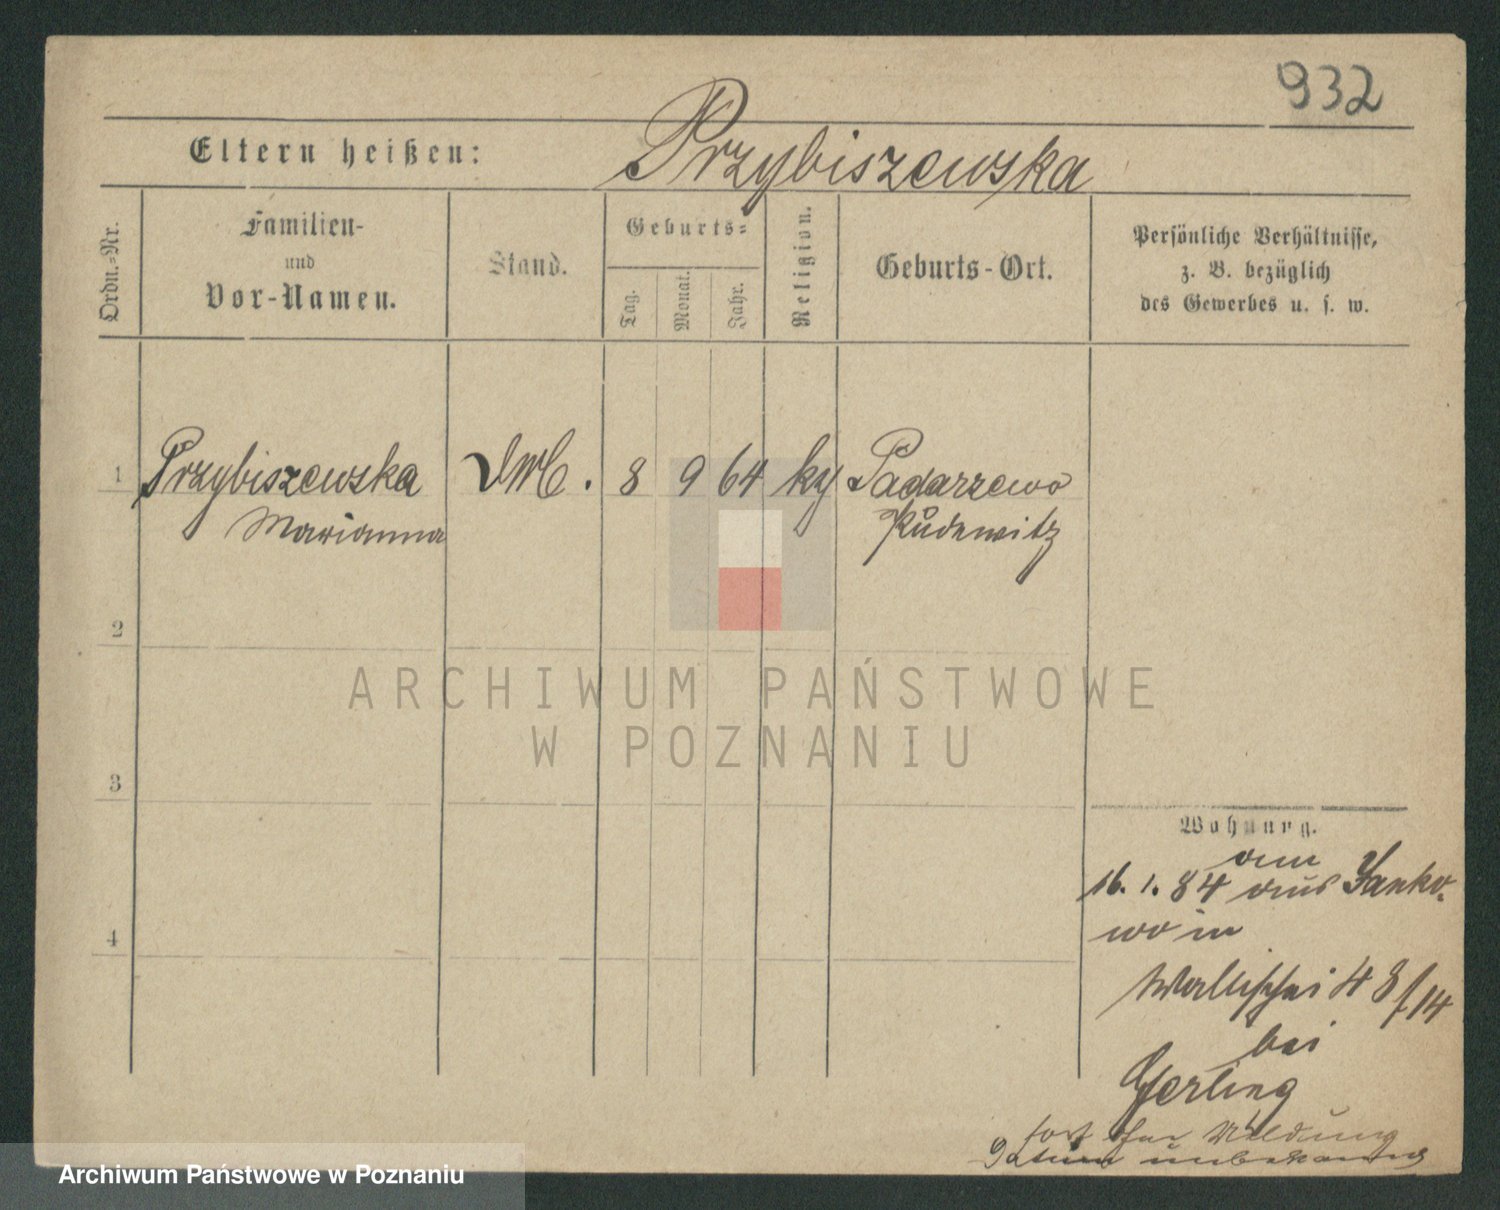 932
Eltern heißen: Przybiszewska
Ordn.-Nr.
Familien-
und
Vor-Namen.
Stand.
Geburts-
Tag.
Monat.
Jahr.
Religion.
Geburts-Ort.
Persönliche Verhältnisse,
z. B. bezüglich
des Gewerbes u. s. w.
1 Przybiszewska 8 9 64 Padarzewo
Marianna
2
ARCHIWUM PAŃSTWOWE
W POZNANIU
3
Wohnung.
16. 1. 84 aus Janko-
wo in
4
Wallischei 48/14
bei
Gerling
fort ohne Meldung
Datum unbekannt
Archiwum Państwowe w Poznaniu